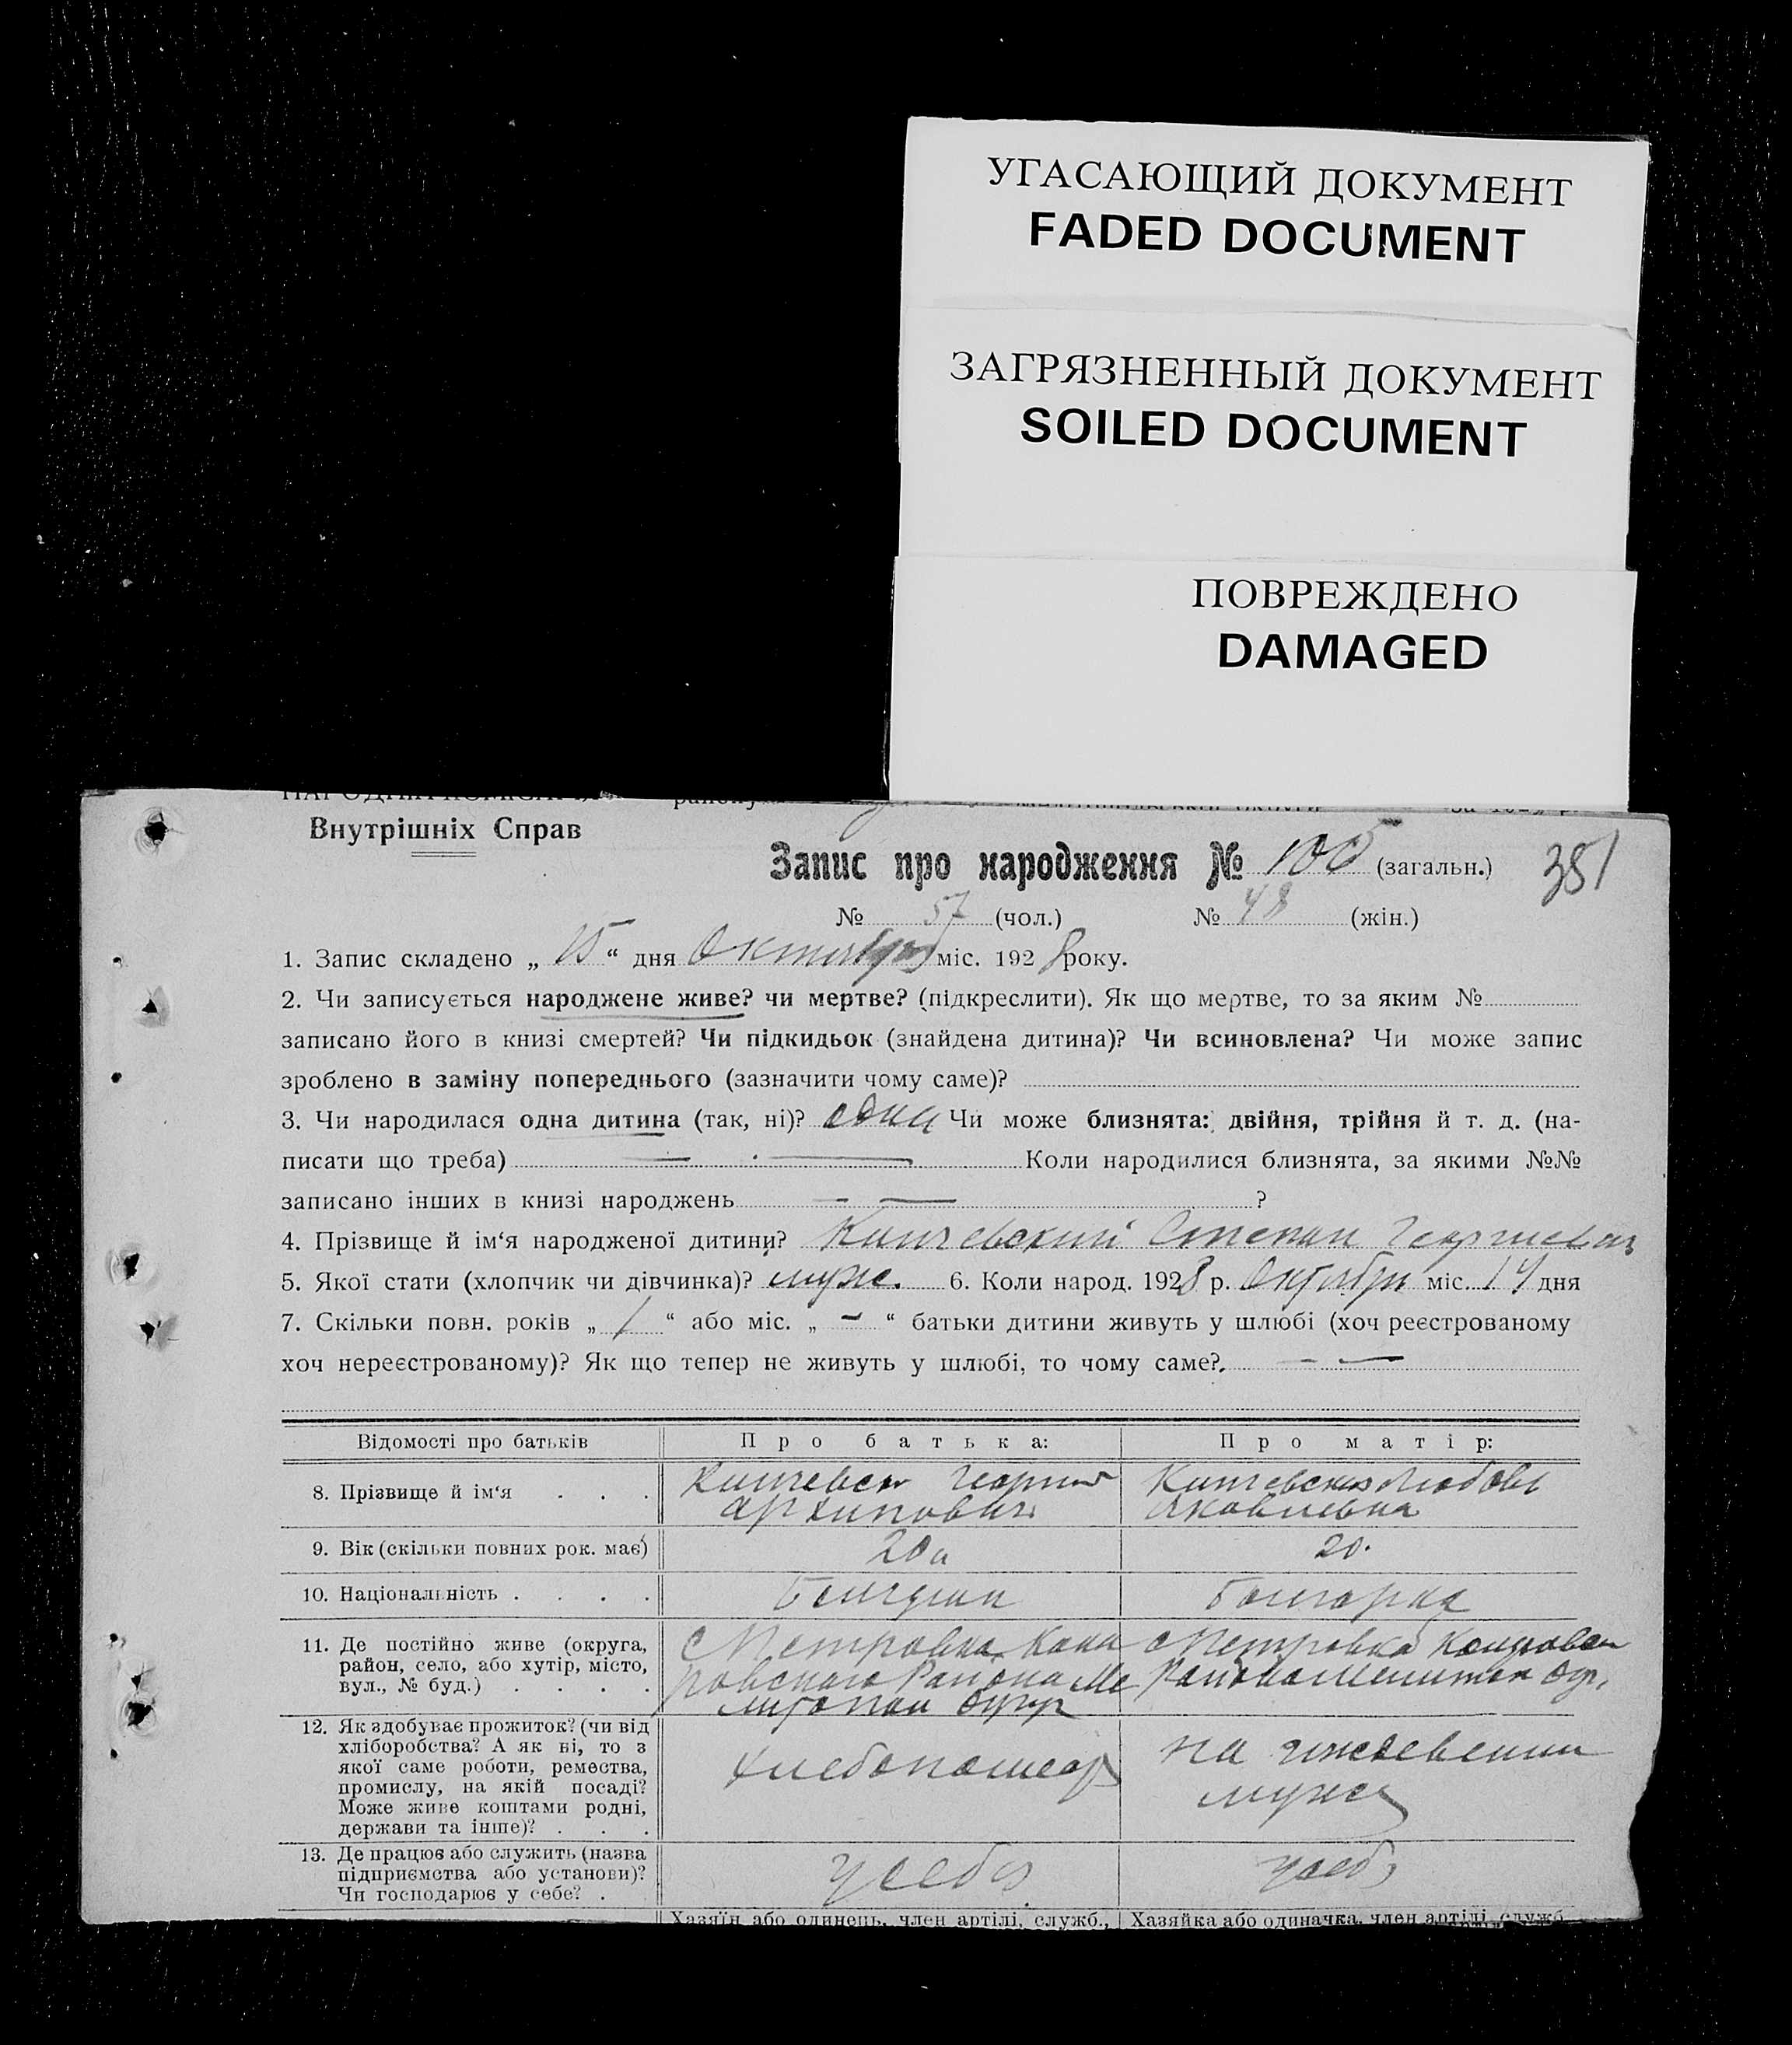 УГАСАЮЩИЙ ДОКУМЕНТ
FADED DOCUMENT
ЗАГРЯЗНЕННЫЙ ДОКУМЕНТ
SOILED DOCUMENT
ПОВРЕЖДЕНО
DAMAGED
Внутрішніх Справ
Запис про народження № 105 (загальн.) 351
№ 57 (чол.) № 48 (жін.)
1. Запис складено „ 15 “ дня Октября міс. 1928 року.
2. Чи записується народжене живе? чи мертве? (підкреслити). Як що мертве, то за яким №
записано його в книзі смертей? Чи підкидьок (знайдена дитина)? Чи всиновлена? Чи може запис
зроблено в заміну попереднього (зазначити чому саме)?
3. Чи народилася одна дитина (так, ні)? одна Чи може близнята: двійня, трійня й т. д. (на-
писати що треба) — — Коли народилися близнята, за якими №№
записано інших в книзі народжень — — ?
4. Прізвище й ім‘я народженої дитини? Степан Георгиевич
5. Якої стати (хлопчик чи дівчинка)? муж. 6. Коли народ. 1928 р. Октября міс. 14 дня
7. Скільки повн. років „ 1 “ або міс. „ — “ батьки дитини живуть у шлюбі (хоч реєстрованому
хоч нереєстрованому)? Як що тепер не живуть у шлюбі, то чому саме? — —
Відомості про батьків Про батька: Про матір:
8. Прізвище й ім‘я . . . Георгий Любовь
Архипович Яковлевна
9. Вік (скільки повних рок. має) 20 20.
10. Національність . . . . Болгарин Болгарка
11. Де постійно живе (округа, с Петровка с Петровка
район, село, або хутір, місто, Района Района
вул., № буд.) . . . .
12. Як здобуває прожиток? (чи від
хліборобства? А як ні, то з на иждевении
якої саме роботи, ремества, хлебопашеср
промислу, на якій посаді? мужа
Може живе коштами родні,
держави та інше)? . . .
13. Де працює або служить (назва
підприємства або установи)? у себя у себя
Чи господарює у себе? .
Хазяїн або одинець, член артілі, служб., Хазяйка або одиначка, член артілі, служб.